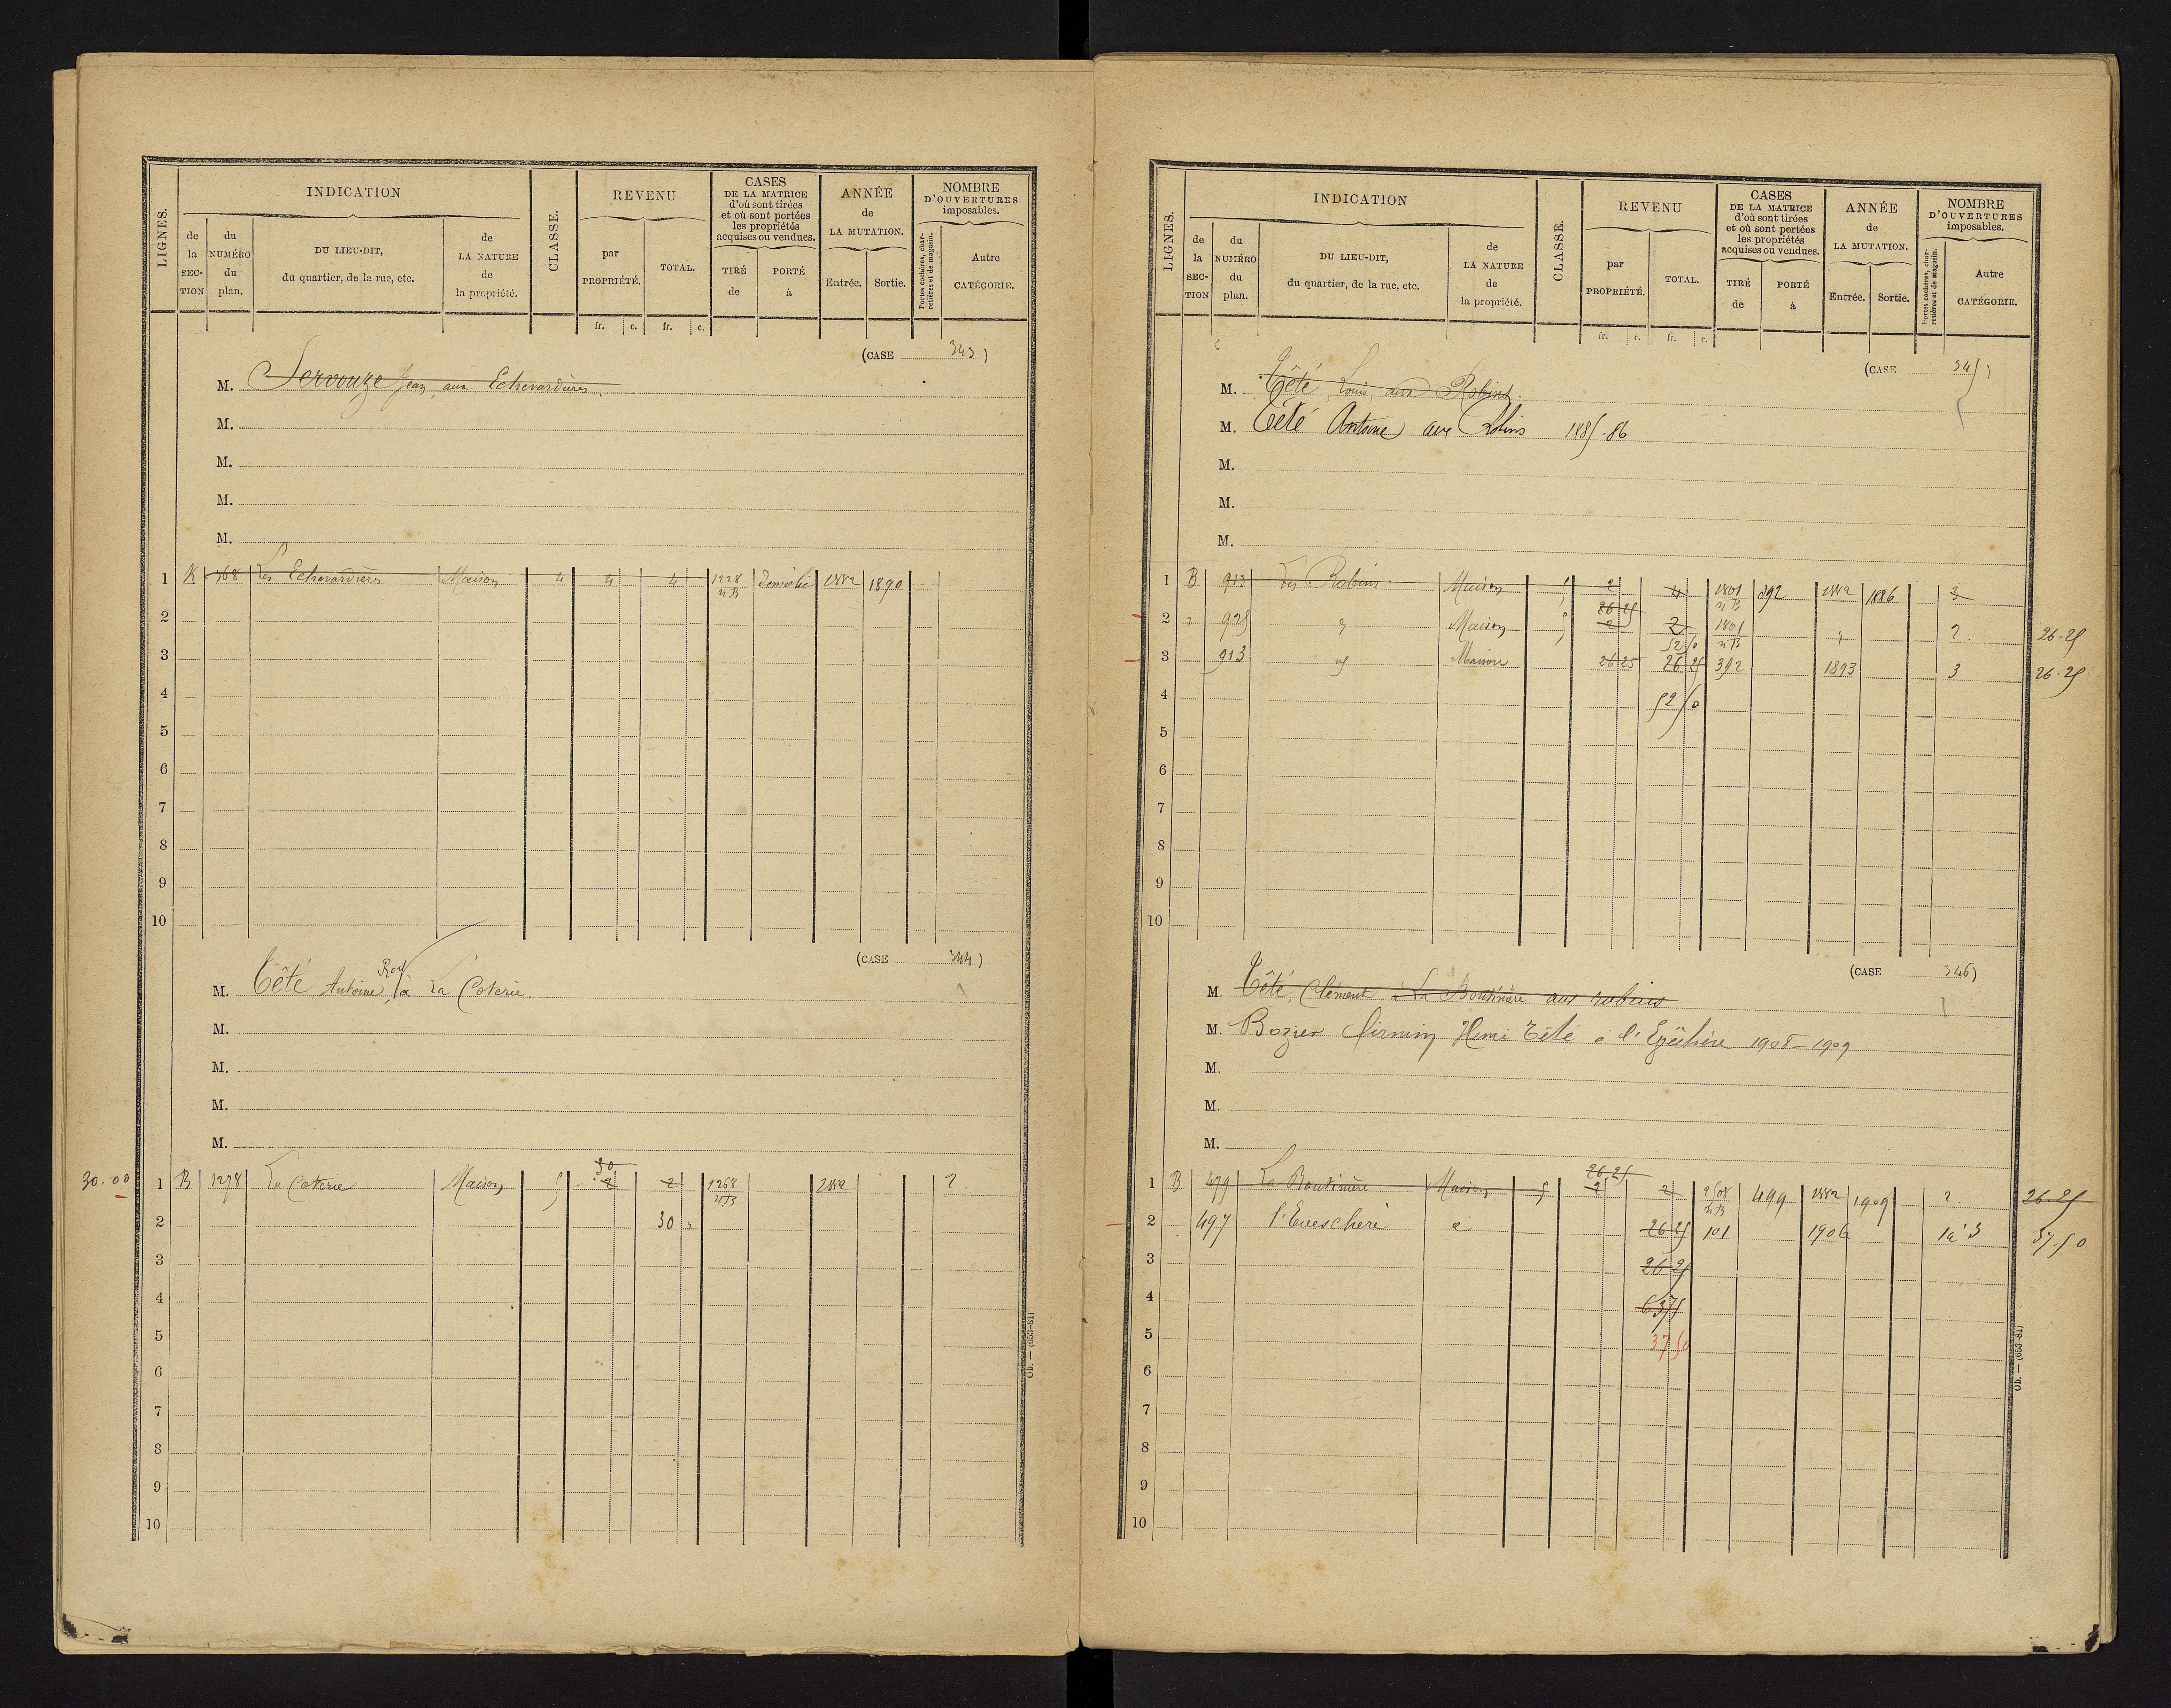 LIGNES.
INDICATION
de la SECTION
du NUMÉRO du plan.
DU LIEU-DIT, du quartier, de la rue, etc.
de LA NATURE de la propriété.
CLASSE.
REVENU
par PROPRIÉTÉ.
TOTAL.
CASES DE LA MATRICE d'où sont tirées et où sont portées les propriétés acquises ou vendues.
TIRÉ de
PORTÉ à
ANNÉE de LA MUTATION.
Entrée.
Sortie.
NOMBRE D'OUVERTURES imposables.
Portes cochères, charretières et de magasin.
Autre CATÉGORIE.
fr. c. fr. c.
(CASE 343)
M. Servouze Jean, aux Echevardières.
M.
M.
M.
M.
1 K 368 Les Echevardières Maison 4 4 4 1228 nB Démoli 1882 1890
2
3
4
5
6
7
8
9
10
(CASE 344)
M. Têté Antoine Roy à La Coterie.
M.
M.
M.
M.
30.00 1 B 1278 La Coterie Maison 5 30 2 2 1268 nB 1882 2.
2 30 "
3
4
5
6
7
8
9
10
Ob. — (653-81)
LIGNES.
INDICATION
de la SECTION
du NUMÉRO du plan.
DU LIEU-DIT, du quartier, de la rue, etc.
de LA NATURE de la propriété.
CLASSE.
REVENU
par PROPRIÉTÉ.
TOTAL.
CASES DE LA MATRICE d'où sont tirées et où sont portées les propriétés acquises ou vendues.
TIRÉ de
PORTÉ à
ANNÉE de LA MUTATION.
Entrée.
Sortie.
NOMBRE D'OUVERTURES imposables.
Portes cochères, charretières et de magasin.
Autre CATÉGORIE.
fr. c. fr. c.
(CASE 345)
M. Têté Louis, aux Robins.
M. Têté Antoine aux Robins 1885-86
M.
M.
M.
1 B 913 Les Robins Maison 5 2 4 1801 nB 392 1882 1886 3
2 " 925 " Maison 5 26 25 2 2 1801 nB " 2. 26.25
52 50
3 913 d Maison 26 25 26 25 392 1893 3 26.25
4 52 50
5
6
7
8
9
10
(CASE 346)
M. Têté, Clément, à La Boutinière aux robins
M. Bozier Firmin Henri Têté à l'Epêchère 1908-1909
M.
M.
M.
1 B 479 La Boutinière Maison 5 26,25 2 2 2508 nB 499 1882 1909 2. 26 25
2 497 l'Evescheré d 26 25 101 1906 1 à 3 37.50
3 26 25
4 63 75
5 37 50
6
7
8
9
10
Ob. — (653-81)